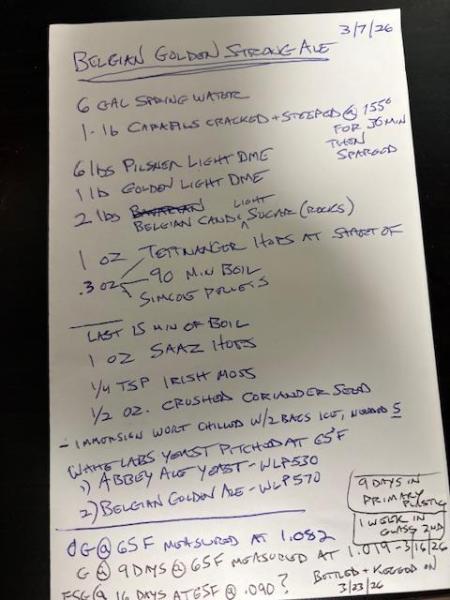 3/7/26
BELGIAN GOLDEN STRONG ALE
6 GAL SPRING WATER
1 - lb CARAPILS CRACKED + STEEPED @ 155°
FOR 30 MIN
THEN
SPARGED
6 lbs PILSNER LIGHT DME
1 lb GOLDEN LIGHT DME
2 lbs BELGIAN CANDI LIGHT SUGAR (ROCKS)
1 OZ TETTNANGER HOPS AT START OF
.3 OZ 90 MIN BOIL
SIMCOE PELLETS
LAST 15 MIN OF BOIL
1 OZ SAAZ HOPS
1/4 TSP IRISH MOSS
1/2 OZ. CRUSHED CORIANDER SEED
- IMMERSION WORT CHILLED W/2 BAGS ICE, NEEDED 5
WHITE LABS YEAST PITCHED AT 65°F
1) ABBEY ALE YEAST - WLP530
2) BELGIAN GOLDEN ALE - WLP570
9 DAYS IN
PRIMARY PLASTIC
1 WEEK IN
GLASS 2ND
OG @ 65F MEASURED AT 1.082
G @ 9 DAYS @ 65F MEASURED AT 1.019 - 3/16/26
BOTTLED + KEGGED ON
3/23/26
FSG @ 16 DAYS AT 65F @ .090?